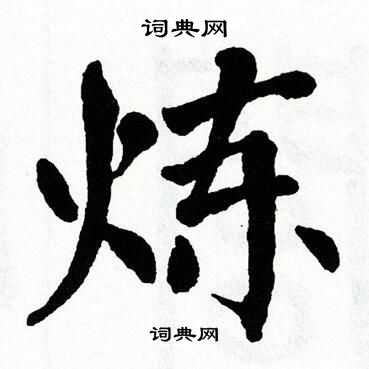 词典网
炼
词典网